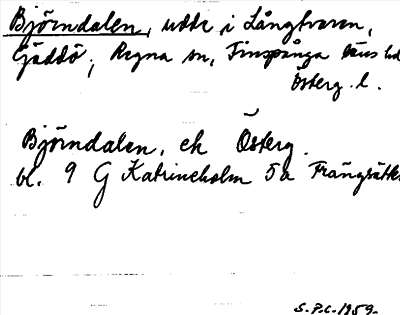 Björndalen, udde i Långtvaren,
Gäddö, Regna sn, Finspånga läns hd
Österg. l.
Björndalen, ek Österg.
bl. 9 G Katrineholm 5a Frängsätter
S.P.C. 1959.